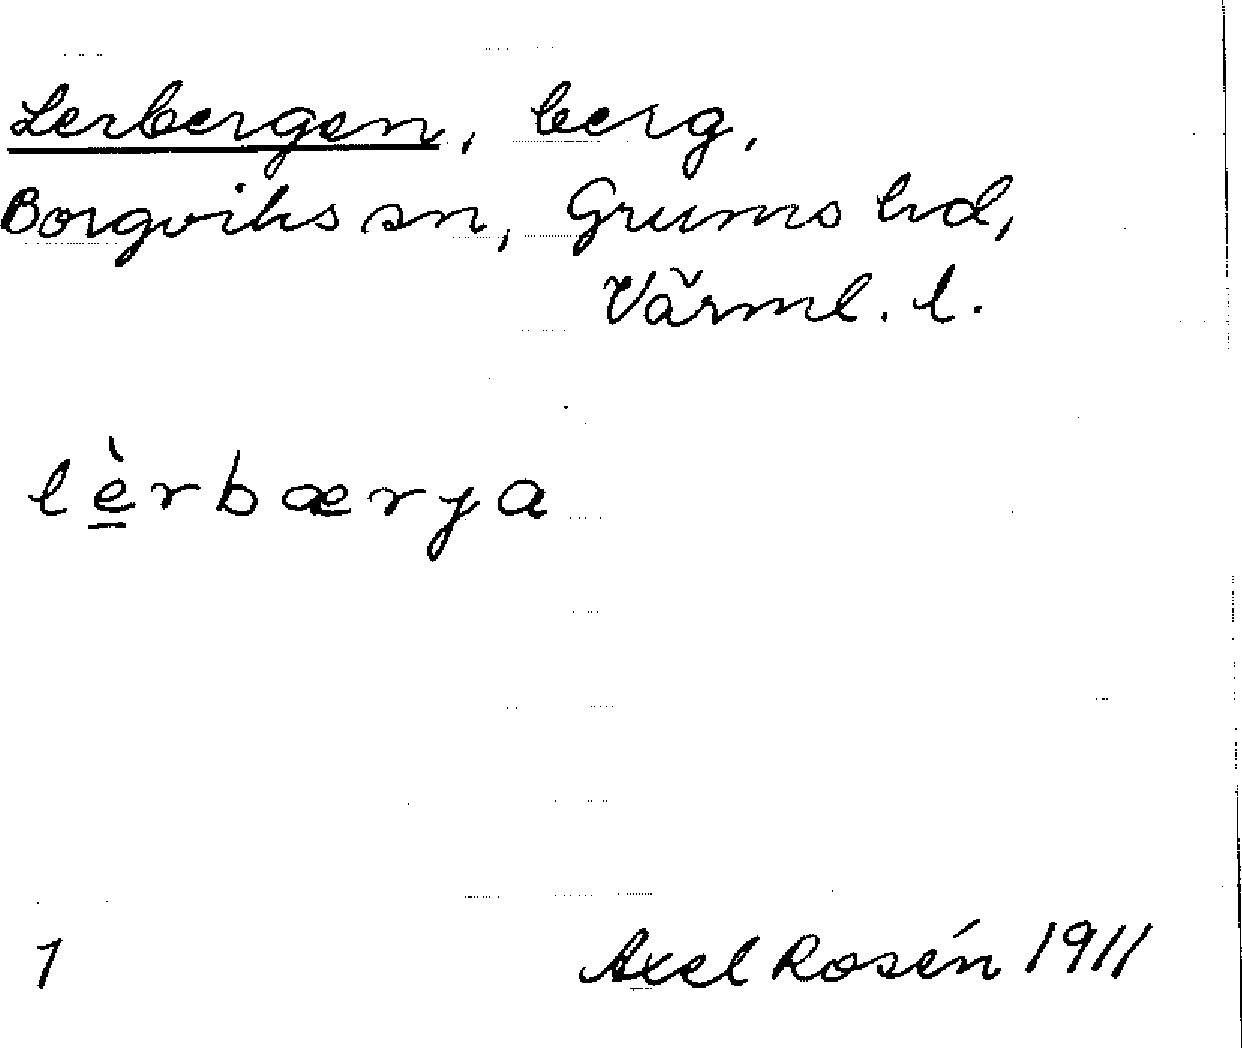 Lerbergen, berg.
Borgviks sn, Grums hd,
Värml. l.
lè̱rbærya
1
Axel Rosén 1911